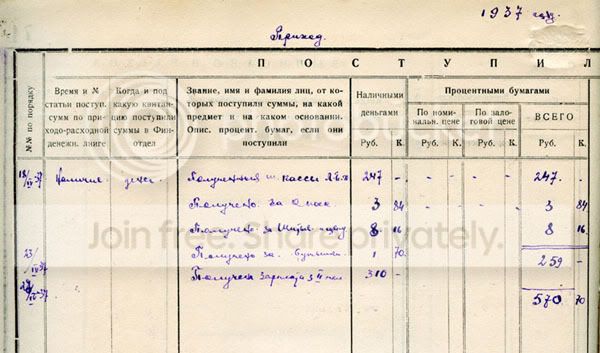 1937 год.
Приход.
ПОСТУПИЛ
№№ по порядку
Время и №
статьи поступ.
сумм по при
ходо-расходной
денежн. книге
Когда и под
какую квитан-
цию поступили
суммы в Фин-
отдел
Звание, имя и фамилия лиц, от ко-
торых поступили суммы, на какой
предмет и на каком основании.
Опис. процент. бумаг, если они
поступили
Наличными
деньгами
Руб. К.
Процентными бумагами
По номи-
нальн. цене
Руб. К.
По зало-
говой цене
Руб. К.
ВСЕГО
Руб. К.
18/IV-37 денег Полученный кассы 247 - 247. -
Получено за 3 84 3 84
Получено за 8 16 8 16
23/IV-37 Получено за. 1 70. 259 -
27/IV-37 Получен 310 - 570 70
Join free. Share privately.